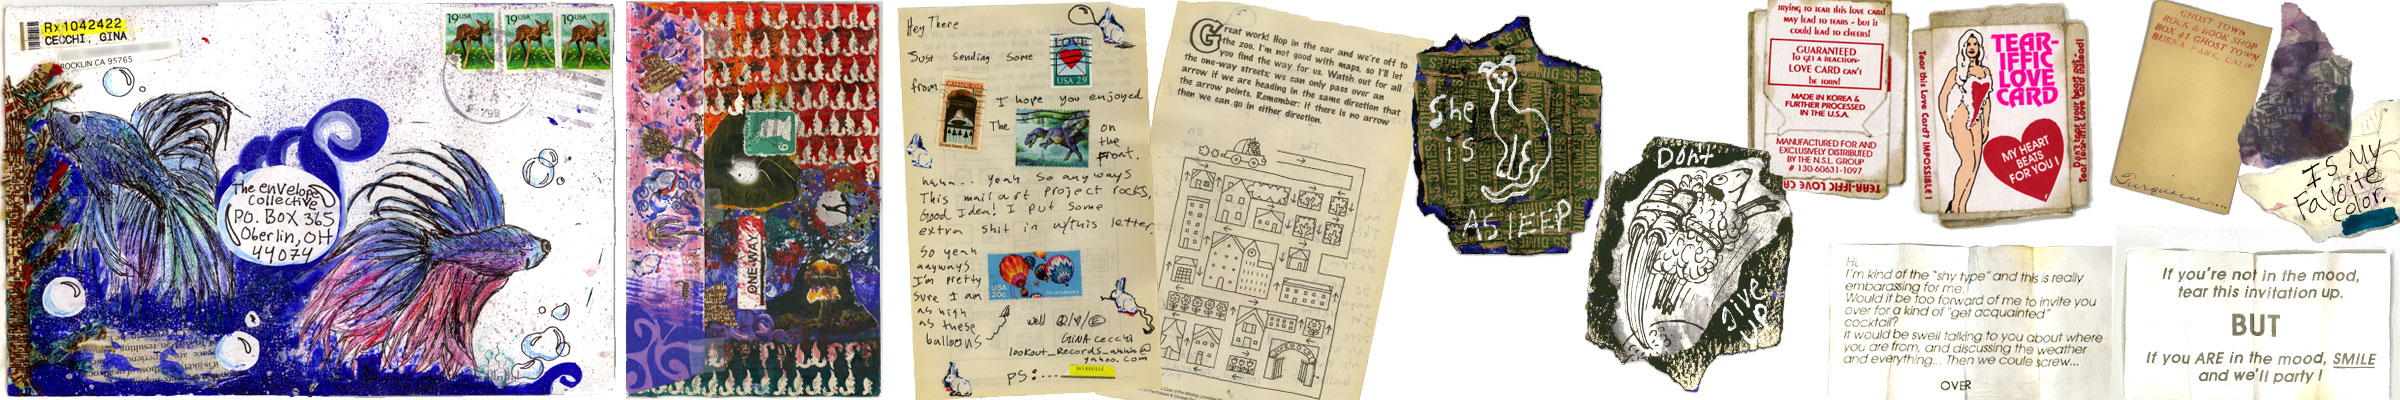 Rx1042422
CECCHI, GINA
ROCKLIN CA 95765
19USA
19USA
19USA
The envelope
collective
P.O. Box 365
Oberlin, OH
44074
ONE WAY
Hey There
Just Sending Some
LOVE
USA 29
from
CALIFORNIA
I hope you enjoyed
The
on
the
front.
haha... yeah So anyways
This mail art project rocks,
Good Idea! I put Some
extra shit in w/this letter
So yeah
anyways
I'm pretty
Sure I am
as high
as these
balloons
USA
20c
well
GINA Cecchi
lookout_Records_ahhh@
yahoo.com
PS:....
NO REFILLS
Great work! Hop in the car and we're off to
the zoo. I'm not good with maps, so I'll let
you find the way for us. Watch out for all
the one-way streets; we can only pass over an
arrow if we are heading in the same direction that
the arrow points. Remember: if there is no arrow
then we can go in either direction.
She
is
ASlEEP
$5 DIMES
Don't
give
UP
TRYING TO TEAR THIS LOVE CARD
MAY LEAD TO TEARS - BUT IT
COULD LEAD TO CHEERS!
GUARANTEED
TO GET A REACTION-
LOVE CARD CAN'T
BE TORN!
MADE IN KOREA &
FURTHER PROCESSED
IN THE U.S.A.
MANUFACTURED FOR AND
EXCLUSIVELY DISTRIBUTED
BY THE N.S.L. GROUP
# 130-60631-1097
TEAR-IFFIC LOVE CA
Tear this Love Card? IMPOSSIBLE!
TEAR-
IFFIC
LOVE
CARD
MY HEART
BEATS
FOR YOU!
GHOST TOWN
ROCK & BOOK SHOP
BOX #1 GHOST TOWN
BUENA PARK, CALIF
Turquoise
IS My
Favorite
Color.
Hi,
I'm kind of the "shy type" and this is really
embarassing for me.
Would it be too forward of me to invite you
over for a kind of "get acquainted"
cocktail?
It would be swell talking to you about where
you are from, and discussing the weather
and everything... Then we could screw...
OVER
If you're not in the mood,
tear this invitation up.
BUT
If you ARE in the mood, SMILE
and we'll party!